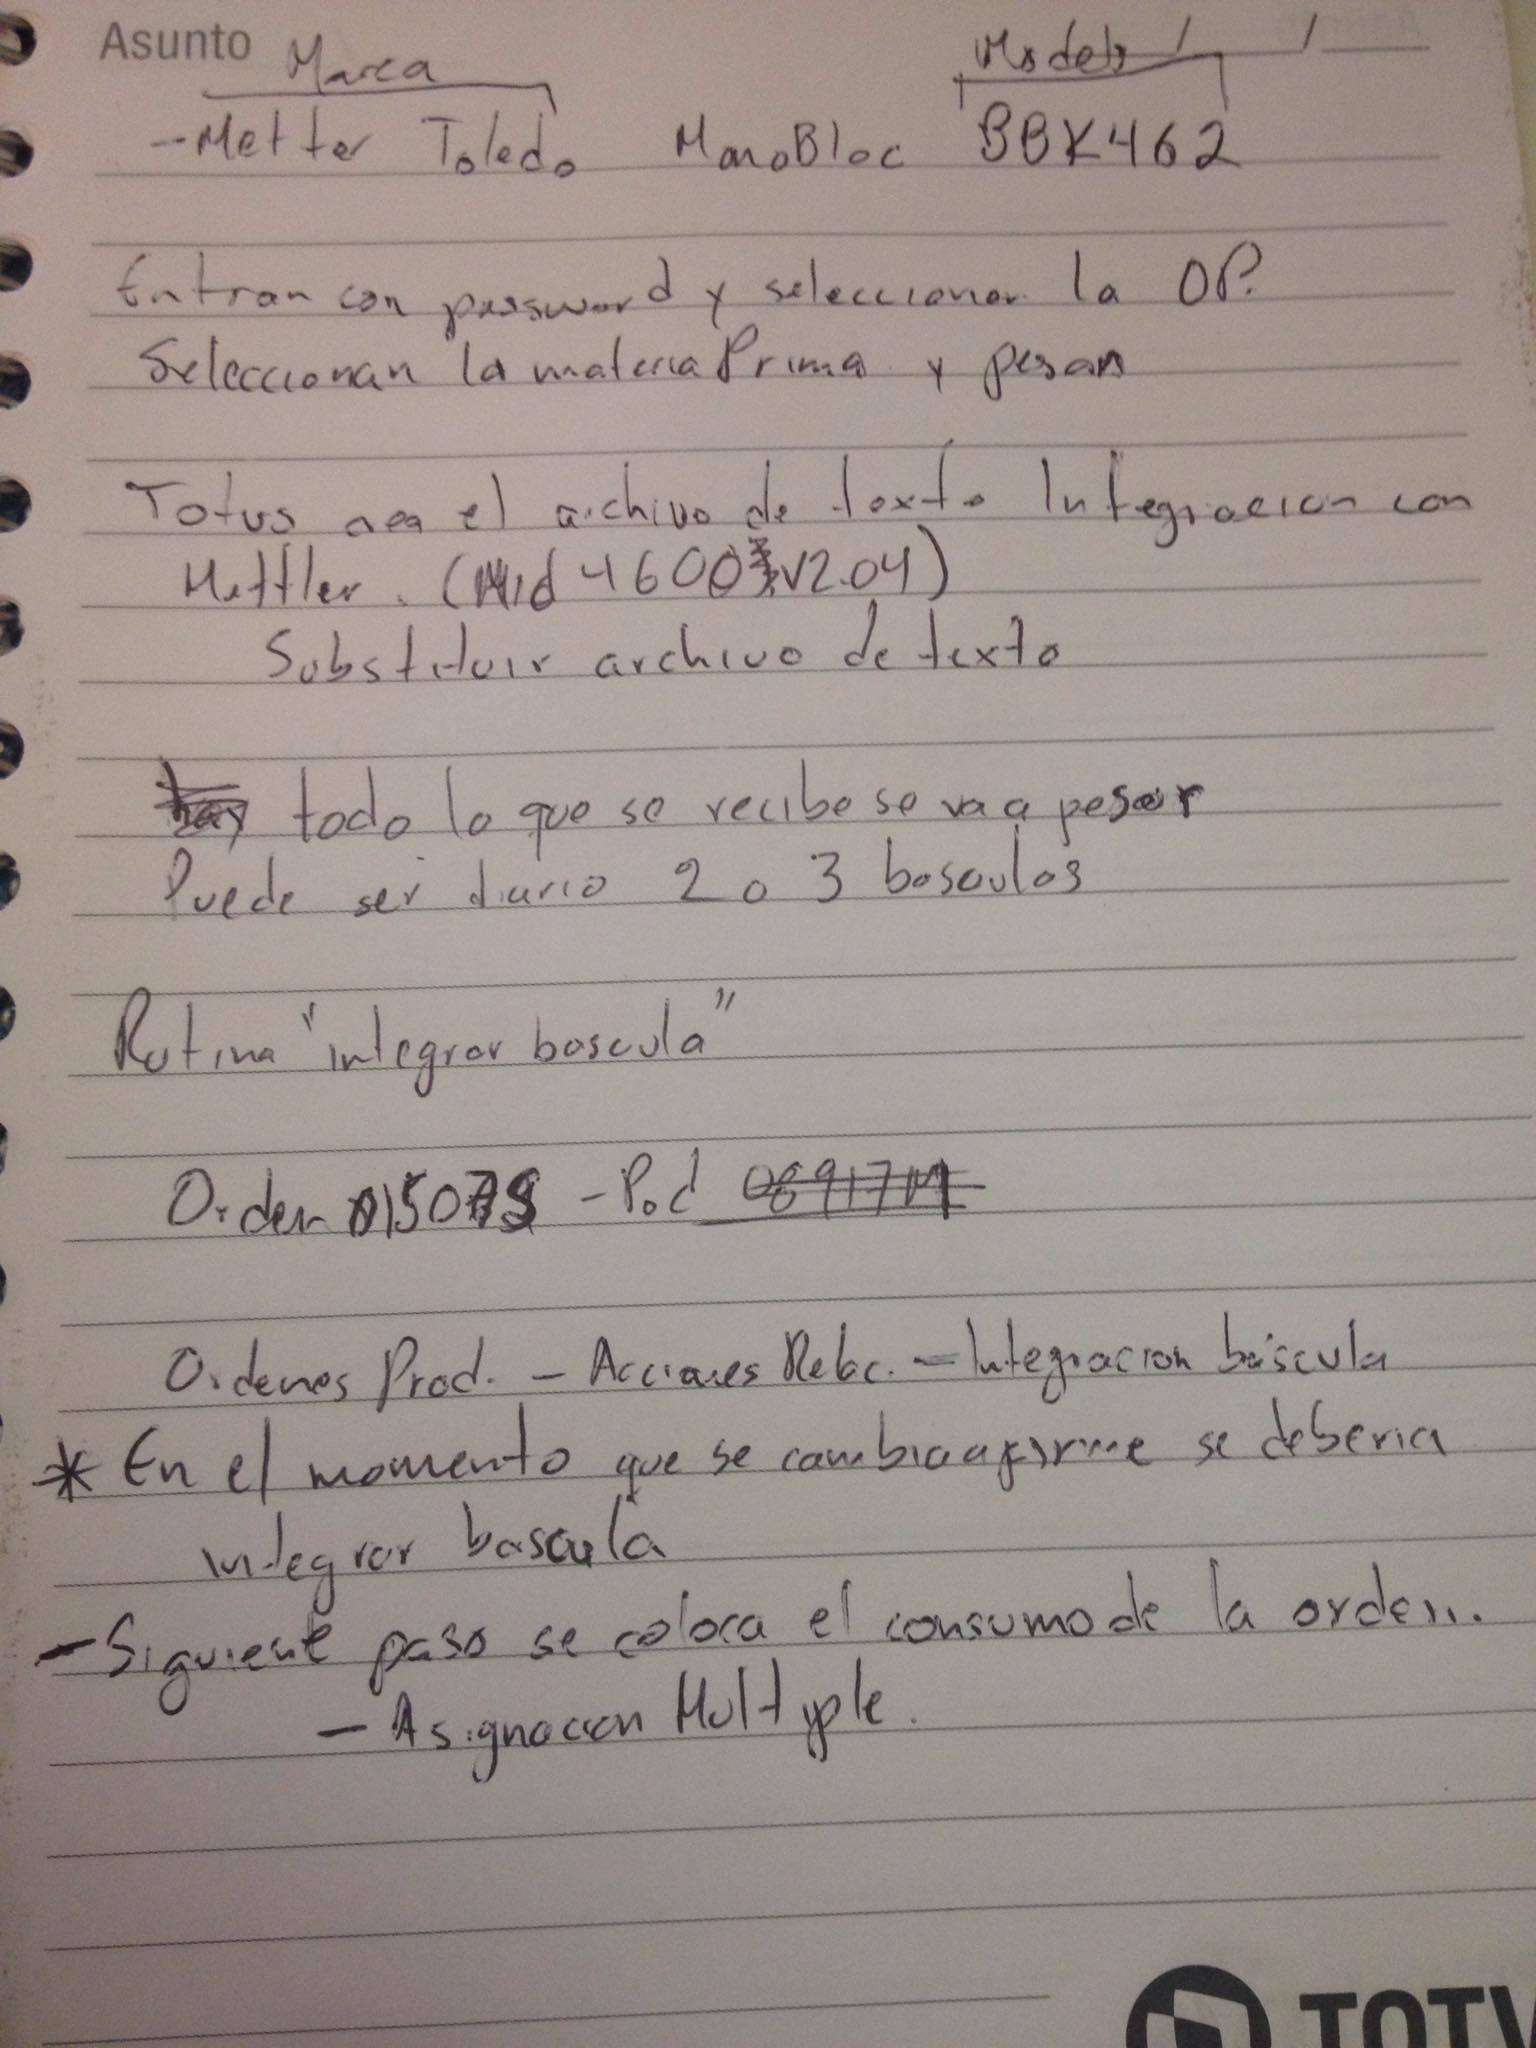 Asunto Marca Modelo / /
- Metter Toledo MonoBloc BBK462
Entran con password y seleccionan la OP.
Seleccionan la materia Prima y pesan
Totvs crea el archivo de texto Integracion con
Mettler. (Mid 4600 V2.04)
Substituir archivo de texto
hay todo lo que se recibe se va a pesar
Puede ser diario 2 o 3 basculas
Rutina "integrar bascula"
Orden - Pod 08917M
Ordenes Prod. - Acciones Relac. - Integracion báscula
* En el momento que se cambia a firme se deberia
integrar bascula
- Siguiente paso se coloca el consumo de la orden.
- Asignacion Multyple.
TOTV